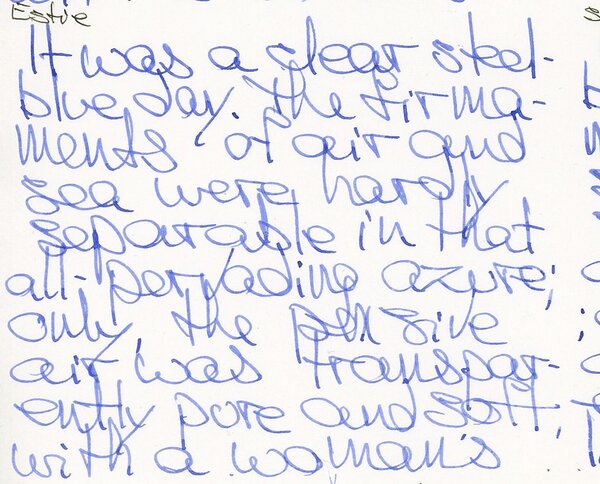 Estie
It was a clear steel-
blue day. The firma-
ments of air and
sea were hardly
separable in that
all-pervading azure;
only, the pensive
air was transpar-
ently pure and soft,
with a woman's